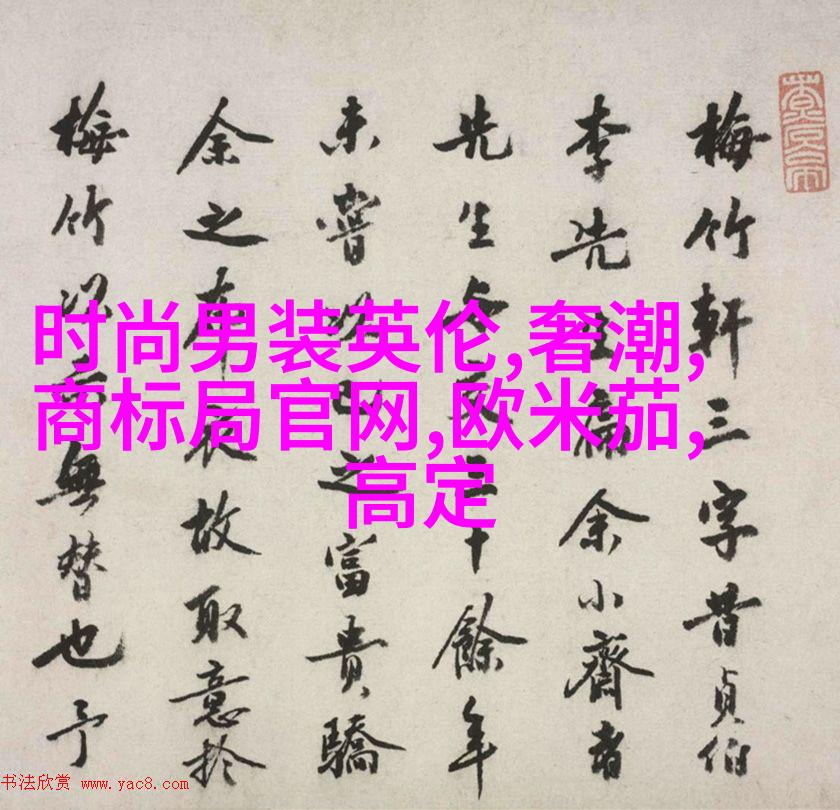 时尚男装英伦,奢潮,
商标局官网,欧米茄,
高定
梅竹軒三字昔貞伯
李先生余小齋者
先生与交三十餘年
未嘗之富貴驕
余之布衣故取意於
梅竹無替也予
书法欣赏 www.yac8.com